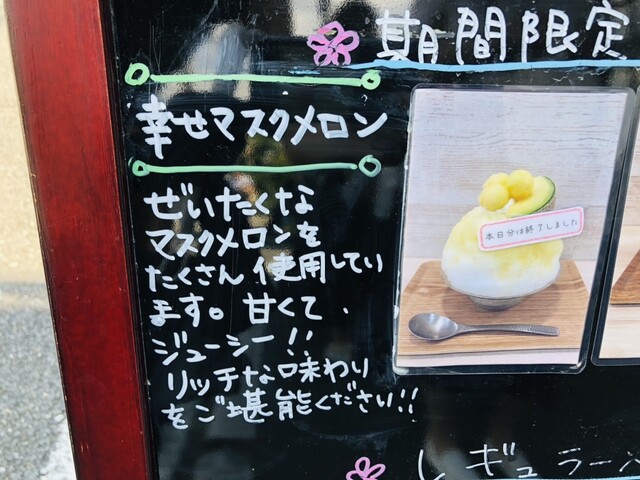 期間限定
幸せマスクメロン
ぜいたくな
マスクメロンを
たくさん使用してい
ます。甘くて、
ジューシー!!
リッチな味わり
をご堪能ください!!
本日分は終了しました
レギュラー